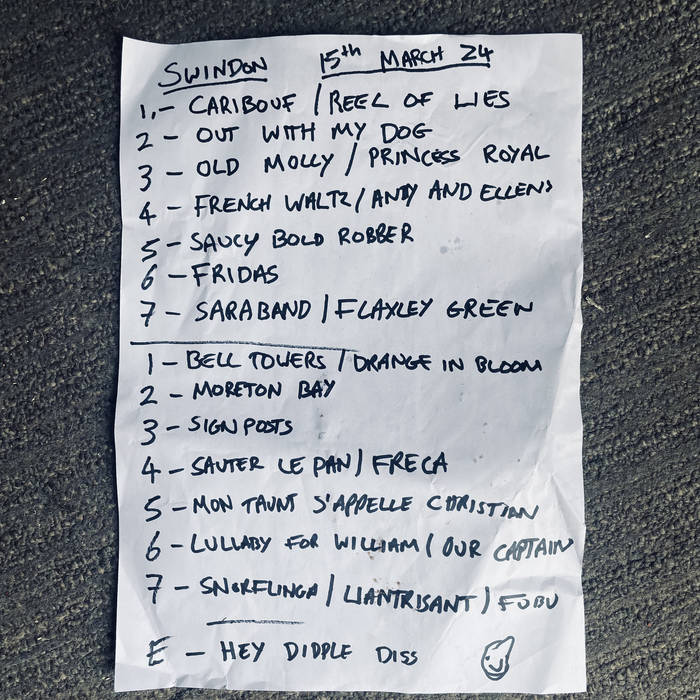 SWINDON 15th MARCH 24
1,- CARIBOUF / REEL OF LIES
2 - OUT WITH MY DOG
3 - OLD MOLLY / PRINCESS ROYAL
4 - FRENCH WALTZ / ANDY AND ELLENS
5 - SAUCY BOLD ROBBER
6 - FRIDAS
7 - SARABAND / FLAXLEY GREEN
1 - BELL TOWERS / ORANGE IN BLOOM
2 - MORETON BAY
3 - SIGNPOSTS
4 - SAUTER LE PAN / FRECA
5 - MON TAUNT S'APPELLE CHRISTIAN
6 - LULLABY FOR WILLIAM / OUR CAPTAIN
7 - SNORFLINGA / LLANTRISANT / FUBU
E - HEY DIDDLE DISS